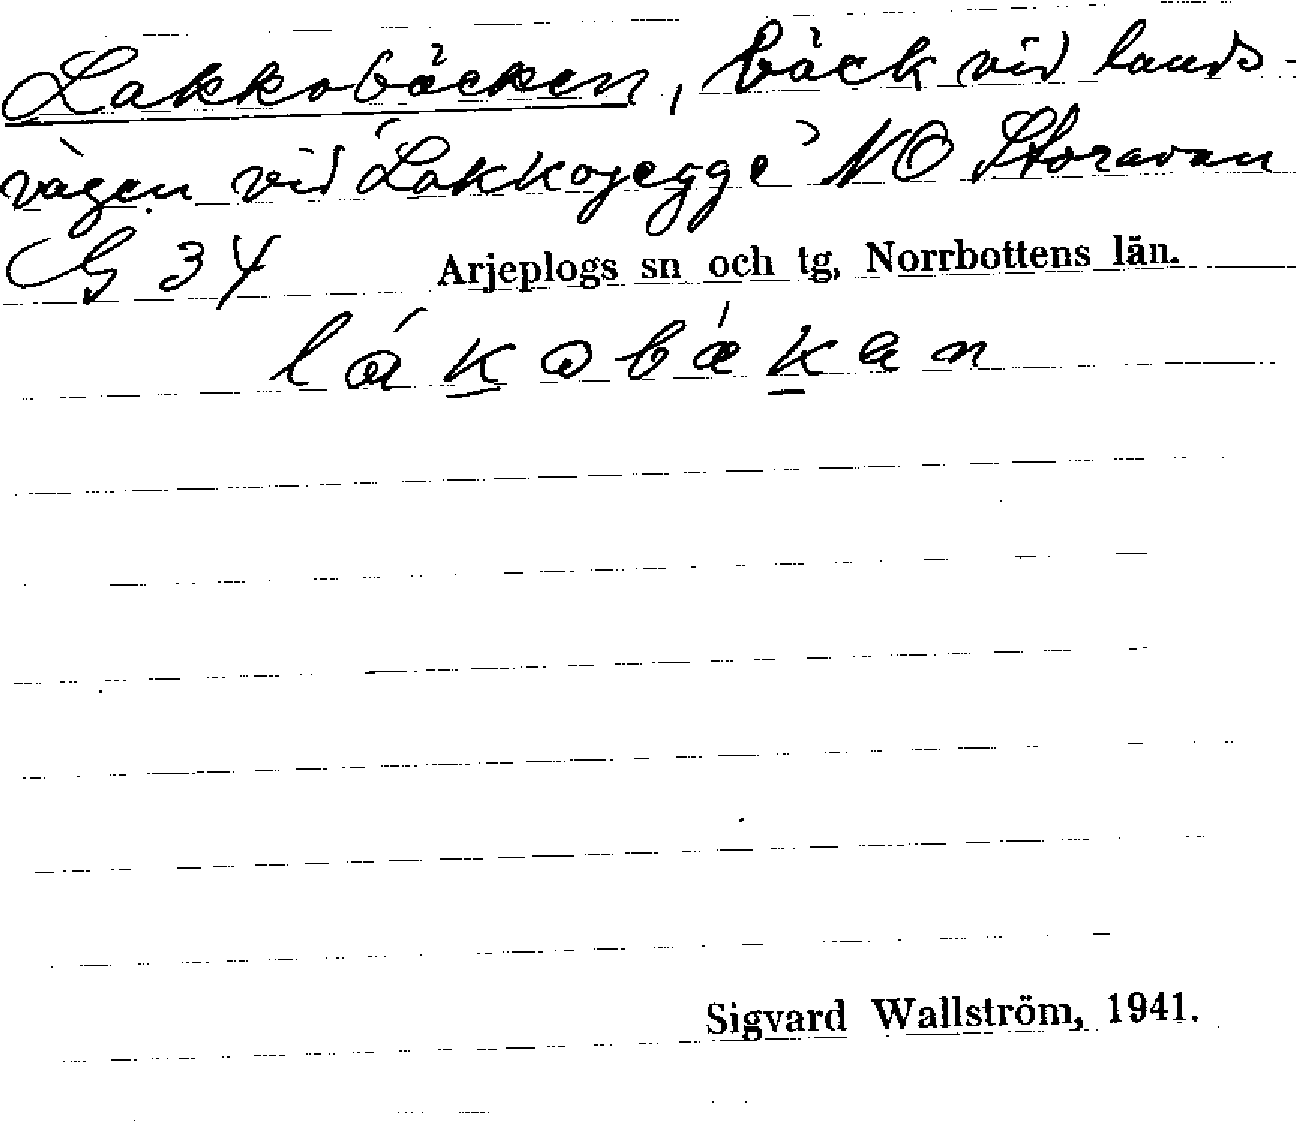 Lakkobäcken, bäck vid lands-
vägen vid "Lakkojegge" NO Storavan
G 34 Arjeplogs sn och tg, Norrbottens län.
Sigvard Wallström, 1941.